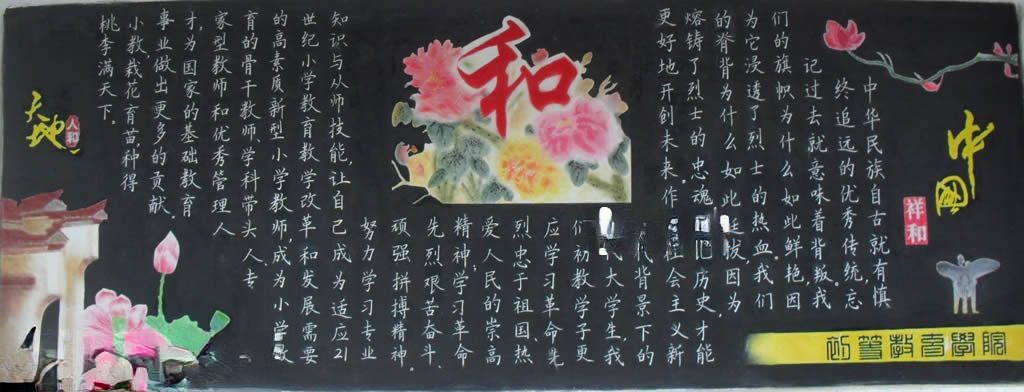 中國
祥和
中华民族自古就有慎
终追远的优秀传统,忘
记过去就意味着背叛。我
们的旗帜为什么如此鲜艳,因
为它浸透了烈士的热血。我们
的脊背为什么如此拔,因为
熔铸了烈士的忠魂。记历史,才能
更好地开创未来。作社会主义新
代背景下的
代大学生,我
们初教学子更
应学习革命先
烈忠于祖国、热
爱人民的崇高
精神;学习革命
先烈艰苦奋斗、
顽强拼搏精神。
努力学习专业
知识与从师技能,让自己成为适应21
世纪小学教育教学改革和发展需要
的高素质新型小学教师,成为小学教
育的骨干教师、学科带头人、专
家型教师和优秀管理人
才,为国家的基础教育
事业做出更多的贡献。
小教,栽花育苗,种得
桃李满天下。
和
天地
人和
初等教育學院